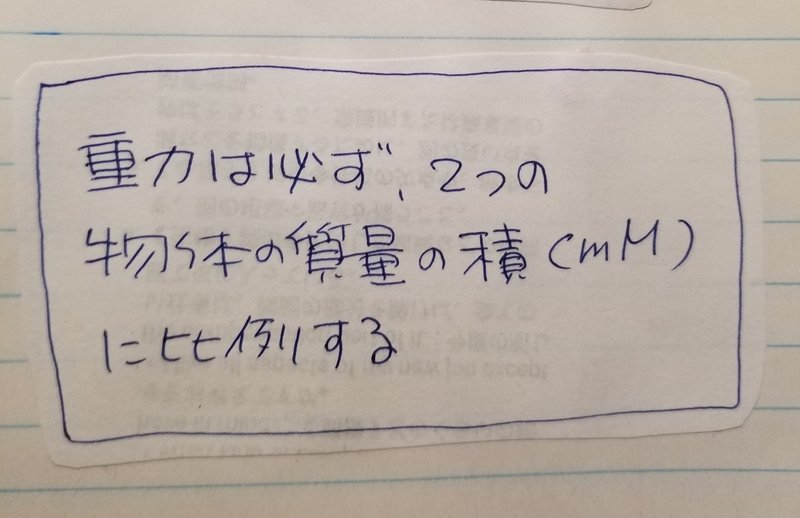 重力は必ず、2つの
物体の質量の積(mM)
に比例する